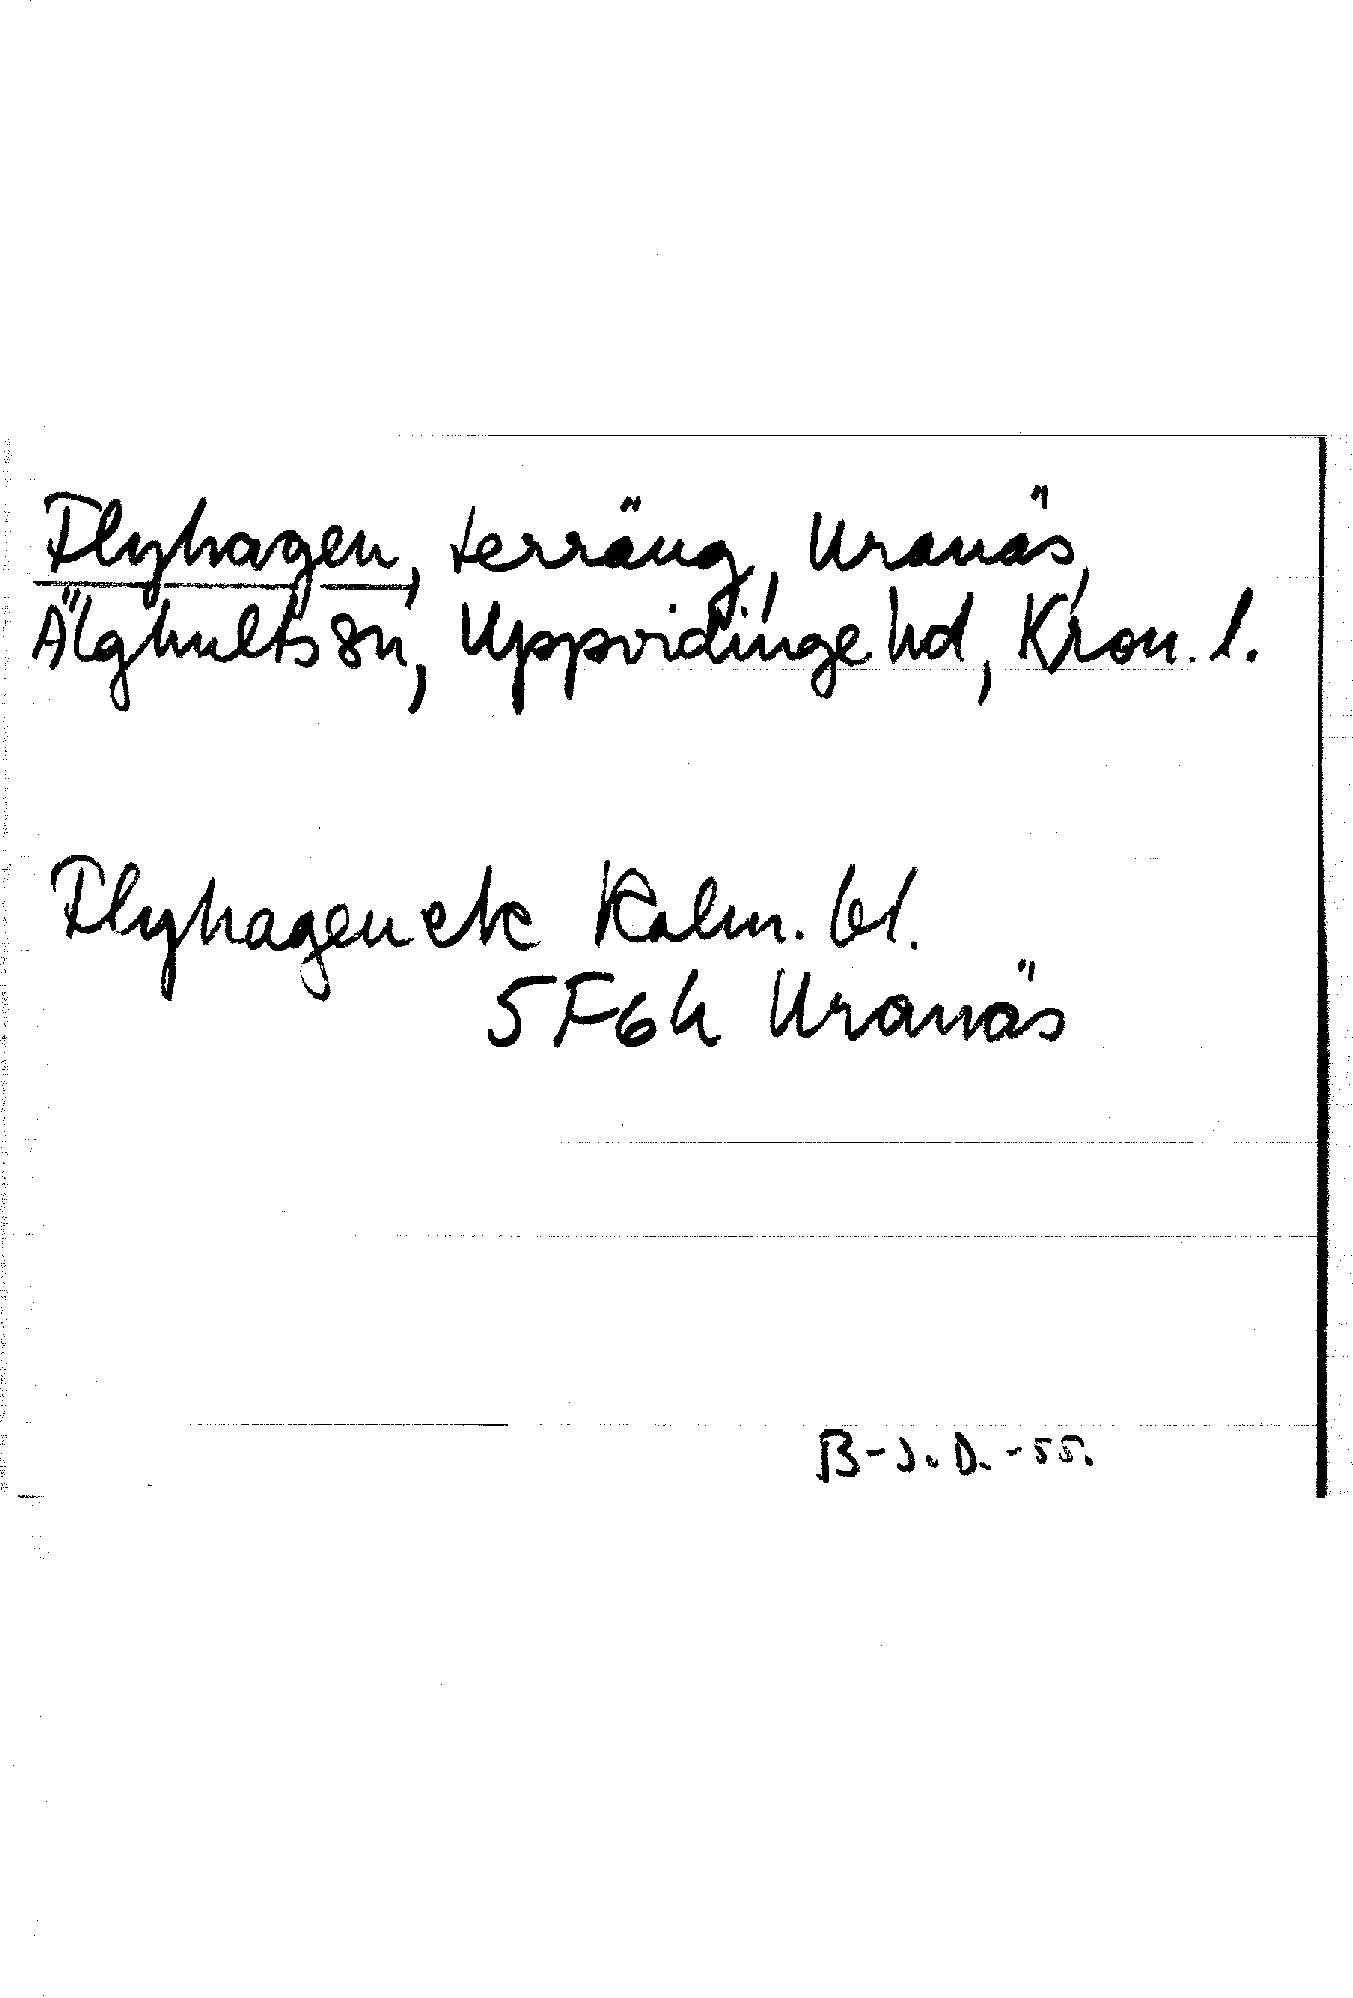 Flyhagen, terräng, Uranäs,
Älghults sn, Uppvidinge hd, Kron. l.
Flyhagen ek Kalm. bl.
5F6h Uranäs
B-J.D.-55.